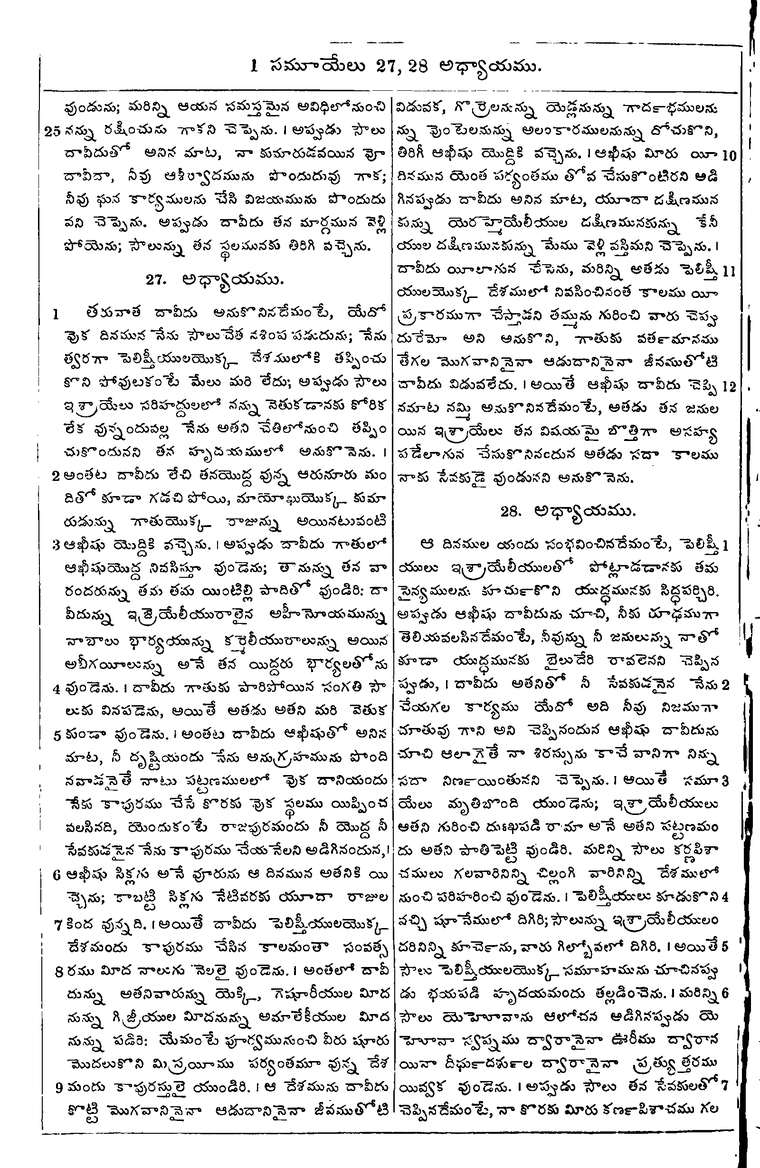 1 సమూయేలు 27, 28 అధ్యాయము.
వుండును; మరిన్ని ఆయన సమస్తమైన అవిధిలోనుంచి
25 నన్ను రక్షించును గాకని చెప్పెను. । అప్పుడు సౌలు
దావీదుతో అనిన మాట, నా కుమారుడవయిన వో
దావీదా, నీవు ఆశీర్వాదమును పొందుదువు గాక;
నీవు ఘన కార్యములను చేసి విజయమును పొందుదు
వని చెప్పెను. అప్పుడు దావీదు తన మార్గమున వెళ్లి
పోయెను; సౌలున్ను తన స్థలమునకు తిరిగి వచ్చెను.
27. అధ్యాయము.
1 తరువాత దావీదు అనుకొనినదేమంటే, యేదో
వొక దినమున నేను సౌలుచేత నశింప పడుదును; నేను
త్వరగా పెలిష్తీయులయొక్క దేశములోకి తప్పించు
కొని పోవులకంటే మేలు మరి లేదు; అప్పుడు సౌలు
ఇశ్రాయేలు సరిహద్దులలో నన్ను వెతుకడానకు కోరిక
లేక వున్నందువల్ల నేను అతని చేతిలోనుంచి తప్పిం
చుకొందునని తన హృదయములో అనుకొనెను. ।
2 అంతట దావీదు లేచి తనయొద్ద వున్న ఆరునూరు మం
దితో కూడా గడచి పోయి, మాయోఖుయొక్క కుమా
రుడున్ను గాతుయొక్క రాజున్ను అయినటువంటి
3 ఆఖీషు యొద్దికి వచ్చెను. । అప్పుడు దావీదు గాతులో
ఆఖీషుయొద్ద నివసిస్తూ వుండెను; తానున్ను తన వా
రందరున్ను తమ తమ యింటిల్లి పాదితో వుండిరి: దా
వీదున్ను ఇజ్రెయేలీయురాలైన అహీనోయమున్ను
నాబాలు భార్యయున్ను కర్మెలీయురాలున్ను అయిన
అబీగయీలున్ను అనే తన యిద్దరు భార్యలతోను
4 వుండెను. । దావీదు గాతుకు పారిపోయిన సంగతి సౌ
లుకు వినపడెను, అయితే అతడు అతని మరి వెతుక
5 కుండా వుండెను. । అంతట దావీదు ఆఖీషుతో అనిన
మాట, నీ దృష్టియందు నేను అనుగ్రహమును పొంది
నవాడనైతే నాటు పట్టణములలో వొక దానియందు
నేకు కాపురము చేసే కొరకు వొక స్థలము యిప్పించ
వలసినది, యెందుకంటే రాజపురమందు నీ యొద్ద నీ
సేవకుడనైన నేను కాపురము చేయనేలని అడిగినందున,।
6 ఆఖీషు సిక్లగు అనే వూరును ఆ దినమున అతనికి యి
చ్చెను; కాబట్టి సిక్లగు నేటివరకు యూదా రాజుల
7 కింద వున్నది. । అయితే దావీదు పెలిష్తీయులయొక్క
దేశమందు కాపురము చేసిన కాలమంతా సంవత్స
8 రము మీద నాలుగు నెలలై వుండెను. । అంతలో దావీ
దున్ను అతనివారున్ను యెక్కి, గెషూరీయుల మీద
నున్ను గిజ్రీయుల మీదనున్ను అమాలేకీయుల మీద
నున్ను పడిరి: యేమంటే పూర్వమునుంచి వీరు షూరు
మొదలుకొని మిస్రయీము పర్యంతమూ వున్న దేశ
9 మందు కాపురస్తులై యుండిరి. । ఆ దేశమును దావీదు
కొట్టి మొగవానినైనా ఆడుదానినైనా జీవముతోటి
విడువక, గొర్రెలనున్ను యెడ్లనున్ను గాదర్‍భములను
న్ను వొంటెలనున్ను అలంకారములనున్ను దోచుకొని,
తిరిగీ ఆఖీషు యొద్దికి వచ్చెను. । ఆఖీషు మీరు యీ 10
దినమున యెంత పర్యంతము తోవ చేసుకొంటిరని అడి
గినప్పుడు దావీదు అనిన మాట, యూదా దక్షిణమున
కున్ను యెరహ్మెయేలీయుల దక్షిణమునకున్ను కేనీ
యుల దక్షిణమునకున్ను మేము వెళ్లి వస్తిమని చెప్పెను. ।
దావీదు యీలాగున చేసెను, మరిన్ని అతడు పెలిష్తీ 11
యులయొక్క దేశములో నివసించినంత కాలము యీ
ప్రకారముగా చేస్తాడని తమ్మును గురించి వారు చెప్పు
దురేమో అని అనుకొని, గాతుకు వర్తమానము
తేగల మొగవానినైనా ఆడుదానినైనా జీవముతోటి
దావీదు విడువలేదు. । అయితే ఆఖీషు దావీదు చెప్పి 12
నమాట నమ్మి అనుకొనినదేమంటే, అతడు తన జనుల
యిన ఇశ్రాయేలు తన విషయమై బొత్తిగా అసహ్య
పడేలాగున చేసుకొనినందున అతడు సదా కాలము
నాకు సేవకుడై వుండునని అనుకొనెను.
28. అధ్యాయము.
ఆ దినముల యందు సంభవించినదేమంటే, పెలిష్తీ 1
యులు ఇశ్రాయేలీయులతో పోట్లాడడానకు తమ
సైన్యములను కూర్చుకొని యుద్ధమునకు సిద్ధపర్చిరి.
అప్పుడు ఆఖీషు దావీదును చూచి, నీకు రూఢముగా
తెలియవలసినదేమంటే, నీవున్ను నీ జనులున్ను నాతో
కూడా యుద్ధమునకు బైలుదేరి రావలెనని చెప్పిన
ప్పుడు, । దావీదు అతనితో నీ సేవకుడనైన నేను 2
చేయగల కార్యము యేదో అది నీవు నిజముగా
చూతువు గాని అని చెప్పినందున ఆఖీషు దావీదును
చూచి ఆలాగైతే నా శిరస్సును కాచే వానిగా నిన్ను
సదా నిర్ణయింతునని చెప్పెను. । అయితే సమూ 3
యేలు మృతిబొంది యుండెను; ఇశ్రాయేలీయులు
అతని గురించి దుఃఖపడి రామా అనే అతని పట్టణమం
దు అతని పాతిపెట్టి వుండిరి. మరిన్ని సౌలు కర్ణపిశా
చములు గలవారినిన్ని చిల్లంగి వారినిన్ని దేశములో
నుంచి పరిహరించి వుండెను. । పెలిష్తీయులు కూడుకొని 4
వచ్చి షూనేములో దిగిరి; సౌలున్ను ఇశ్రాయేలీయులం
దరినిన్ని కూర్చెను, వారు గిల్బోవలో దిగిరి. । అయితే 5
సౌలు పెలిష్తీయులయొక్క సమూహమును చూచినప్పు
డు భయపడి హృదయమందు తల్లడించెను. । మరిన్ని 6
సౌలు యెహోవాను ఆలోచన అడిగినప్పుడు యె
హోవా స్వప్నము ద్వారానైనా ఊరీము ద్వారాన
యినా దీర్ఘదర్శుల ద్వారానైనా ప్రత్యుత్తరము
యివ్వక వుండెను. । అప్పుడు సౌలు తన సేవకులతో 7
చెప్పినదేమంటే, నా కొరకు మీరు కర్ణపిశాచము గల